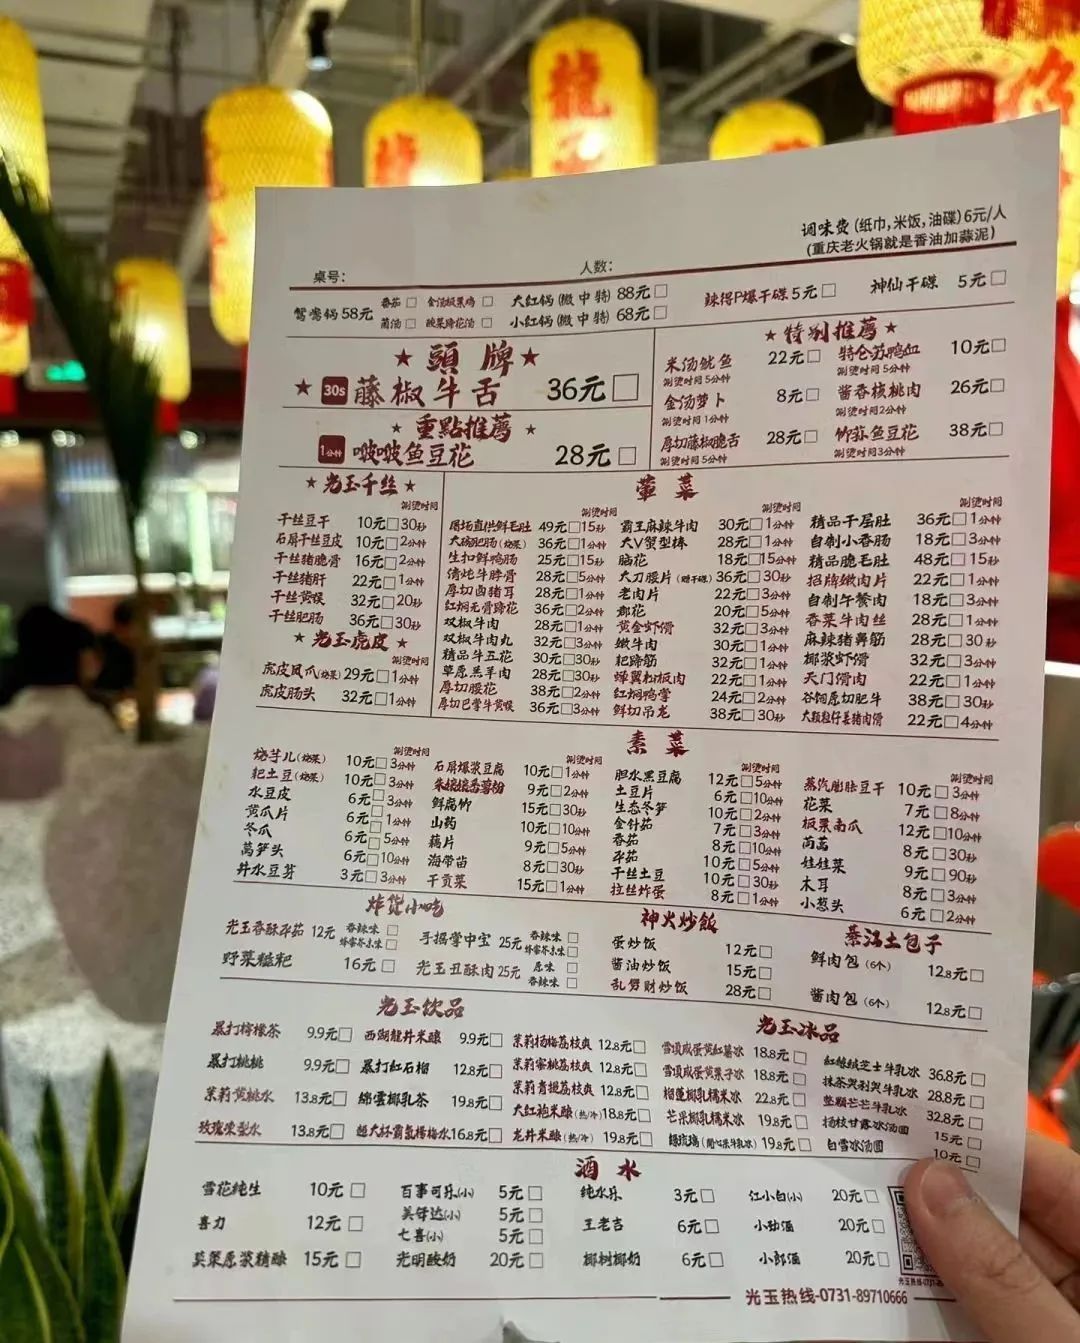 調味费 (纸巾,米饭,油碟) 6元/人
(重庆老火锅就是香油加蒜泥)
桌号: 人数:
鸳鸯锅 58元 番茄 □ 金汤板栗鸡 □ 菌油 □ 酸菜蹄花油 □
大红锅 (微 中 特) 88元 □
小红锅 (微 中 特) 68元 □
辣得P爆干碟 5元 □ 神仙干碟 5元 □
★ 頭牌 ★
★ 30s 藤椒牛舌 36元 □
★ 重點推薦 ★
1分钟 啵啵鱼豆花 28元 □
★ 特别推薦 ★
米汤鱿鱼 22元 □ 特仑苏鸭血 10元 □
涮烫时间 5分钟 涮烫时间 5分钟
金汤萝卜 8元 □ 酱香核桃肉 26元 □
涮烫时间 1分钟 涮烫时间2分钟
厚切藤椒脆舌 28元 □ 竹荪鱼豆花 38元 □
涮烫时间 5分钟 涮烫时间3分钟
★ 光玉千丝 ★
涮烫时间
千丝豆干 10元 □ 30秒
石屏千丝豆皮 10元 □ 2分钟
千丝猪脆骨 16元 □ 2分钟
千丝猪肝 22元 □ 1分钟
千丝黄喉 32元 □ 20秒
千丝肥肠 36元 □ 30秒
★ 光玉虎皮 ★
涮烫时间
虎皮凤爪 (烧菜) 29元 □ 1分钟
虎皮肠头 32元 □ 1分钟
葷菜
涮烫时间
屠场直供鲜毛肚 49元 □ 15秒
大碗肥肠 (烧菜) 36元 □ 1分钟
生扣鲜鸭肠 25元 □ 15秒
清炖牛脖骨 28元 □ 5分钟
厚切卤猪耳 28元 □ 1分钟
红焖无骨蹄花 36元 □ 2分钟
双椒牛肉 28元 □ 1分钟
双椒牛肉丸 32元 □ 3分钟
精品牛五花 30元 □ 30秒
草原黑羊肉 28元 □ 30秒
厚切腰花 38元 □ 2分钟
厚切巴掌牛黄喉 36元 □ 3分钟
涮烫时间
霸王麻辣牛肉 30元 □ 1分钟
大V蟹型棒 28元 □ 1分钟
脑花 18元 □ 15分钟
大刀腰片 (赠干碟) 36元 □ 30秒
老肉片 22元 □ 3分钟
郡花 20元 □ 5分钟
黄金虾滑 32元 □ 3分钟
嫩牛肉 30元 □ 1分钟
耙蹄筋 32元 □ 1分钟
蝉翼杉板肉 22元 □ 1分钟
红焖鸭掌 24元 □ 2分钟
鲜切吊龙 38元 □ 30秒
涮烫时间
精品千层肚 36元 □ 1分钟
自制小香肠 18元 □ 3分钟
精品脆毛肚 48元 □ 15秒
招牌嫩肉片 22元 □ 1分钟
自制午餐肉 18元 □ 3分钟
香菜牛肉丝 28元 □ 1分钟
麻辣猪鼻筋 28元 □ 30秒
椰浆虾滑 32元 □ 3分钟
天门滑肉 22元 □ 1分钟
谷饲厚切肥牛 38元 □ 30秒
大颗粒仔姜猪肉滑 22元 □ 4分钟
素菜
涮烫时间
烧芋儿 (烧菜) 10元 □ 3分钟
耙土豆 (烧菜) 10元 □ 3分钟
水豆皮 6元 □ 3分钟
黄瓜片 6元 □ 1分钟
冬瓜 6元 □ 5分钟
莴笋头 6元 □ 10分钟
井水豆芽 3元 □ 3分钟
涮烫时间
石屏爆浆豆腐 10元 □ 1分钟
9元 □ 2分钟
鲜腐竹 15元 □ 30秒
山药 10元 □ 10分钟
藕片 9元 □ 5分钟
海带苗 8元 □ 30秒
干贡菜 15元 □ 1分钟
涮烫时间
胆水黑豆腐 12元 □ 5分钟
土豆片 6元 □ 10分钟
生态冬笋 10元 □ 2分钟
金针菇 7元 □ 3分钟
香菇 8元 □ 10分钟
平菇 10元 □ 5分钟
千丝土豆 10元 □ 30秒
拉丝炸蛋 8元 □ 1分钟
涮烫时间
蒸汽膨胀豆干 10元 □ 3分钟
花菜 7元 □ 8分钟
板栗南瓜 12元 □ 10分钟
茼蒿 8元 □ 30秒
娃娃菜 9元 □ 90秒
木耳 8元 □ 3分钟
小葱头 6元 □ 2分钟
炸货小吃
光玉香酥平菇 12元 香辣味 □ 蜂蜜芥末味 □
手摇掌中宝 25元 香辣味 □ 蜂蜜芥末味 □
野菜糍粑 16元 □
光玉丑酥肉 25元 原味 □ 香辣味 □
神火炒飯
蛋炒饭 12元 □
酱油炒饭 15元 □
乱劈财炒饭 28元 □
蒸汤土包子
鲜肉包 (6个) 12.8元 □
酱肉包 (6个) 12.8元 □
光玉饮品
暴打柠檬茶 9.9元 □ 西湖龍井米釀 9.9元 □ 茉莉杨梅荔枝爽 12.8元 □
暴打桃桃 9.9元 □ 暴打红石榴 12.8元 □ 茉莉蜜桃荔枝爽 12.8元 □
茉莉青提荔枝爽 12.8元 □
茉莉黄桃水 13.8元 □ 綿雲椰乳茶 19.8元 □ 大红袍米釀 (热/冷) 18.8元 □
玫瑰荣梨水 13.8元 □ 超大杯霸氣楊梅水 16.8元 □ 龙井米釀 (热/冷) 19.8元 □
光玉冰品
雪顶咸蛋黄红薯冰 18.8元 □ 红丝绒芝士牛乳冰 36.8元 □
雪顶咸蛋黄栗子冰 18.8元 □ 抹茶哭利哭牛乳冰 28.8元 □
榴莲椰乳糯米冰 22.8元 □ 整颗芒芒牛乳冰 32.8元 □
芒果椰乳糯米冰 19.8元 □ 杨枝甘露冰汤圆 15元 □
绿琉璃 (開心果牛乳冰) 19.8元 □ 白雪冰汤圆 10元 □
酒水
雪花纯生 10元 □ 百事可乐(小) 5元 □ 纯水乐 3元 □ 江小白(小) 20元 □
美年达(小) 5元 □
喜力 12元 □ 七喜(小) 5元 □ 王老吉 6元 □ 小劲酒 20元 □
莫菜原浆精酿 15元 □ 光明酸奶 20元 □ 椰树椰奶 6元 □ 小郎酒 20元 □
光玉热线-0731-8
光玉热线-0731-89710666
龍